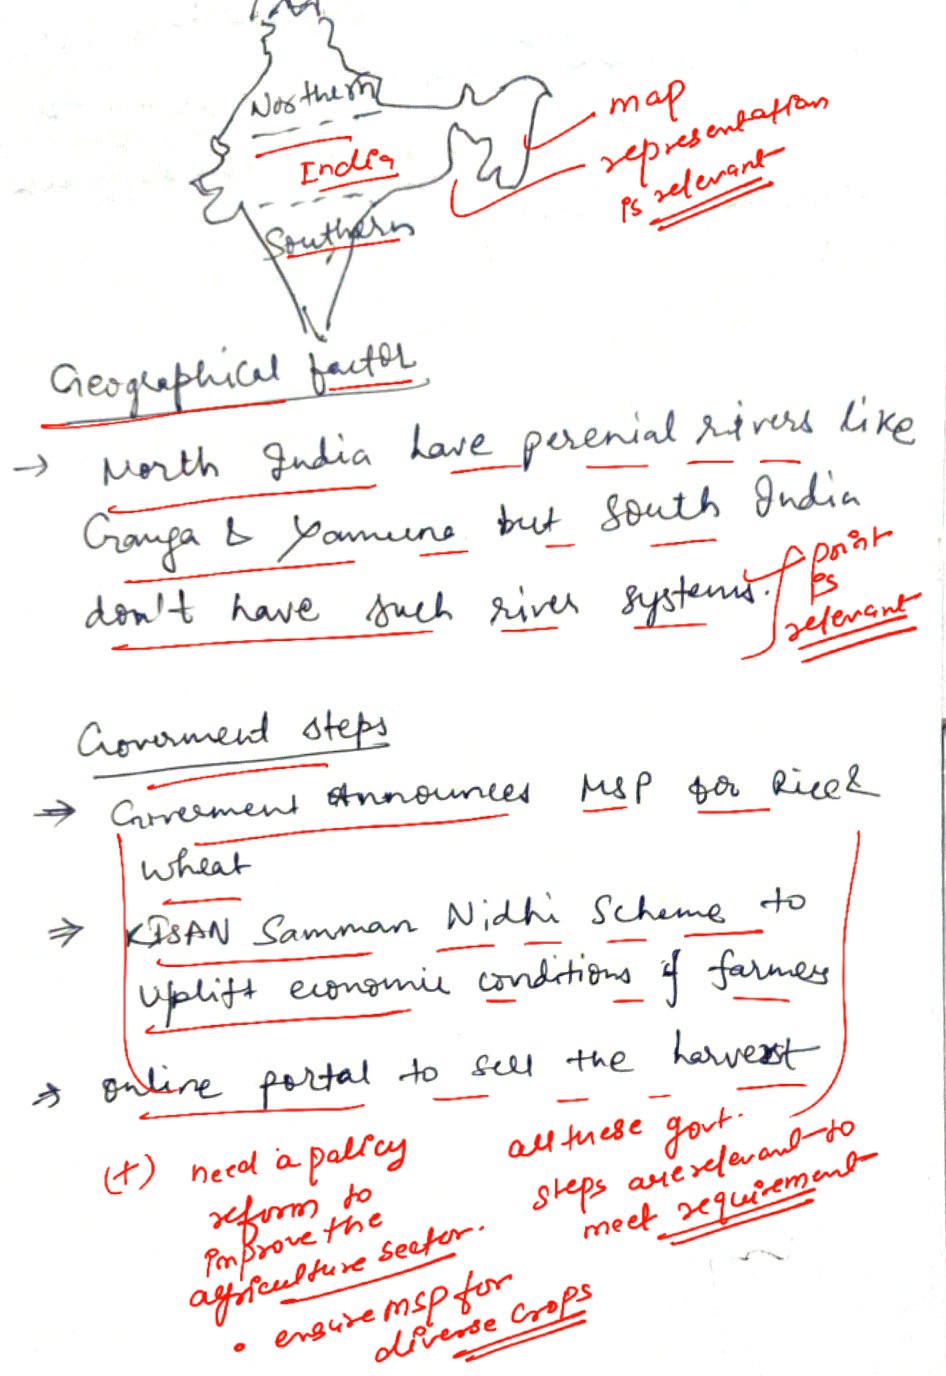 Northern
India
Southern
map
representation
is relevant
Geographical factor
→ North India have perenial rivers like
Ganga & Yamuna but South India
don't have such river systems.
point
is
relevant
Goverment steps
⇒ Goverment Announces MSP for Rice &
wheat
⇒ KISAN Samman Nidhi Scheme to
Uplift economic conditions of farmers
⇒ online portal to sell the harvest
(+) need a policy
reform to
improve the
agriculture sector.
• ensure MSP for
diverse crops
all these govt.
steps are relevant to
meet requirement